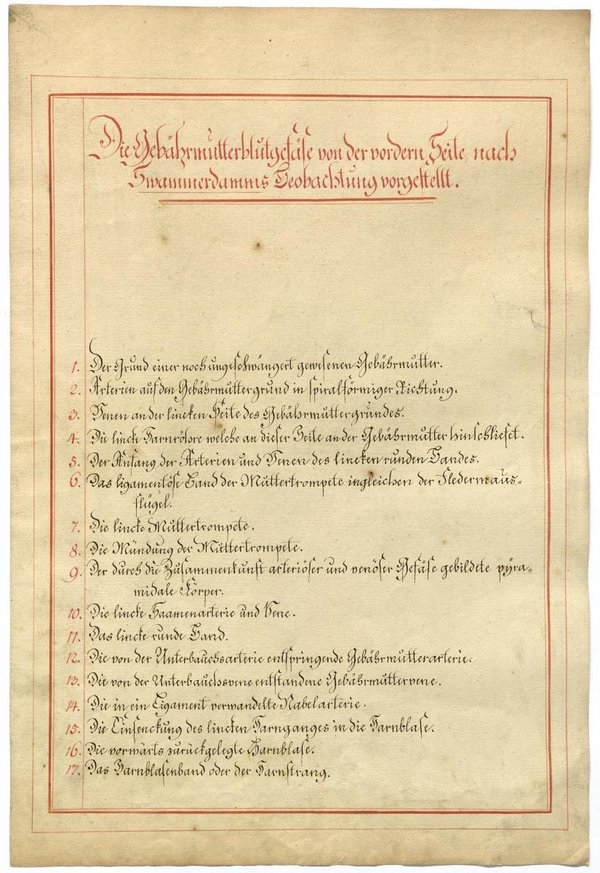 Die Gebährmutterblutgefäse von der vordern Seite, nach
Swammerdamms Beobachtung vorgestellt.
1. Der Grund einer noch ungeschwängert gewesenen Gebährmutter.
2. Arterien auf den Gebährmuttergrund in spiralförmiger Richtung.
3. Venen an der lincken Seite des Gebährmuttergrundes.
4. Die lincke Harnröhre welche an dieser Seite an der Gebährmutter hinschliefet.
5. Der Anfang der Arterien und Venen des lincken runden Bandes.
6. Das ligamentöse Band der Muttertrompete ingleichen der Fledermaus-
flügel.
7. Die lincke Muttertrompete.
8. Die Mündung der Muttertrompete.
9. Der durch die Zusammenkunft arteriöser und venöser Gefäse gebildete pyra-
midale Körper.
10. Die lincke Saamenarterie und Vene.
11. Das lincke runde Band.
12. Die von der Unterbauchsarterie entspringende Gebährmutterarterie.
13. Die von der Unterbauchsvene entstandene Gebährmuttervene.
14. Die in ein Ligament verwandelte Nabelarterie.
15. Die Einsenckung des lincken Harnganges in die Harnblase.
16. Die vorwärts zurückgelegte Harnblase.
17. Das Harnblasenband oder der Harnstrang.